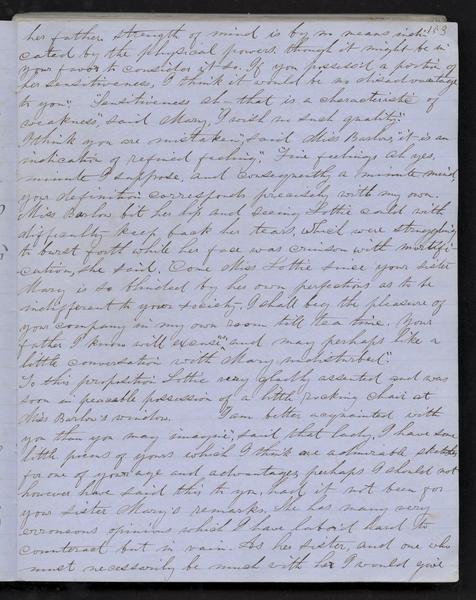 183
her father. strength of mind is by no means indi-
cated by the physical powers though it might be in
your favor to consider it so. If you possess'd a portion of
her sensitiveness, I think it would be no disadvantage
to you". Sensitiveness ah – that is a characteristic of
weakness", said Mary, "I wish no such quality."
I think you are mistaken", said Miss Barlow, "it is an
indication of refined feeling". Fine feelings ah yes,
minute I suppose, and consequently a minute mind,
your definition corresponds precisely with my own.
Miss Barlow bit her lip and seeing Lottie could with
difficulty keep back her tears, which were struggling
to burst forth while her face was crimson with mortifi-
cation, she said. Come Miss Lottie since your sister
Mary is so blinded by her own perfections as to be
indifferent to your society, I shall beg the pleasure of
your company in my own room till tea time. Your
father I know will excuse and may perhaps like a
little conversation with Mary undisturbed".
To this proposition Lottie very gladly assented and was
soon in peaceable possession of a little rocking chair at
Miss Barlow's window. I am better acquainted with
you than you may imagine", said that lady. I have some
little poems of yours which I think are admirable sketches
for one of your age and advantages, perhaps I should not
however have said this to you, had it not been for
your sister Mary's remarks. She has many very
erroneous opinions which I have labor'd hard to
counteract but in vain. As her sister, and one who
must necessarily be much with her I would give